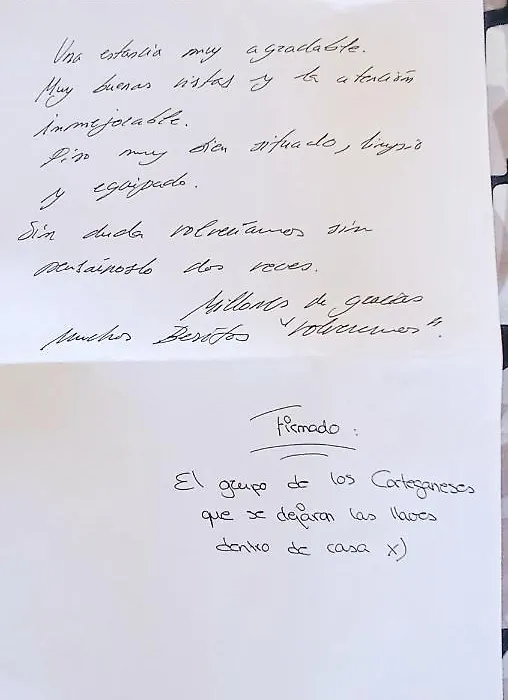 Una estancia muy agradable.
Muy buenas vistas y la atención
inmejorable.
Piso muy bien situado, limpio
y equipado.
Sin duda volveríamos sin
pensárnoslo dos veces.
Millones de gracias
Muchos Besitos "Volveremos".
Firmado:
El grupo de los Corteganeses
que se dejaron las llaves
dentro de casa x)